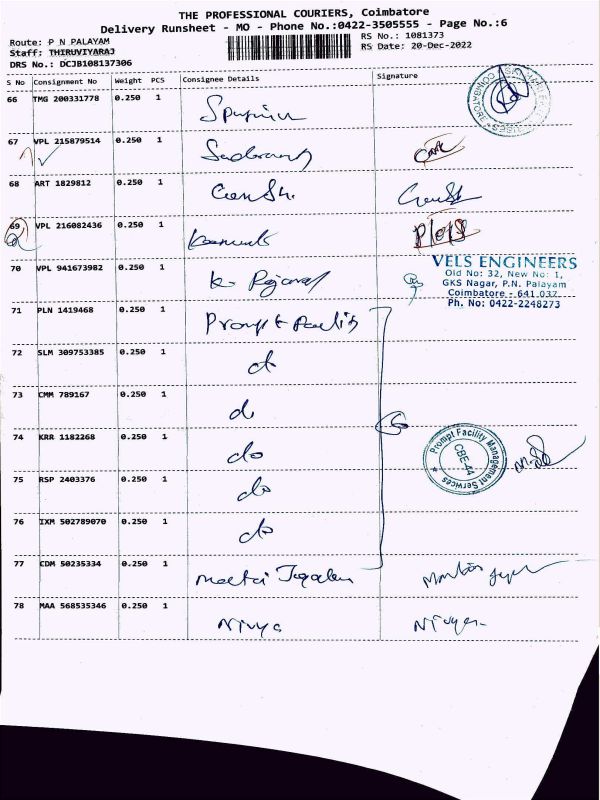 THE PROFESSIONAL COURIERS, Coimbatore
Delivery Runsheet - MO - Phone No.:0422-3505555 - Page No.:6
Route: P N PALAYAM
RS No.: 1081373
Staff: THIRUVIYARAJ
RS Date: 20-Dec-2022
DRS No.: DCJB108137306
S No Consignment No Weight PCS Consignee Details Signature
66 TMG 200331778 0.250 1
67 VPL 215879514 0.250 1
68 ART 1829812 0.250 1
69 VPL 216082436 0.250 1
70 VPL 941673982 0.250 1
VELS ENGINEERS
Old No: 32, New No: 1,
GKS Nagar, P.N. Palayam
Coimbatore - 641 037.
Ph. No: 0422-2248273
71 PLN 1419468 0.250 1 Prompt
72 SLM 309753385 0.250 1
73 CMM 789167 0.250 1 do
74 KRR 1182268 0.250 1 do
Prompt Facility Management Services
CBE-44
75 RSP 2403376 0.250 1 do
76 IXM 502789070 0.250 1 do
77 CDM 50235334 0.250 1
78 MAA 568535346 0.250 1 Nivya